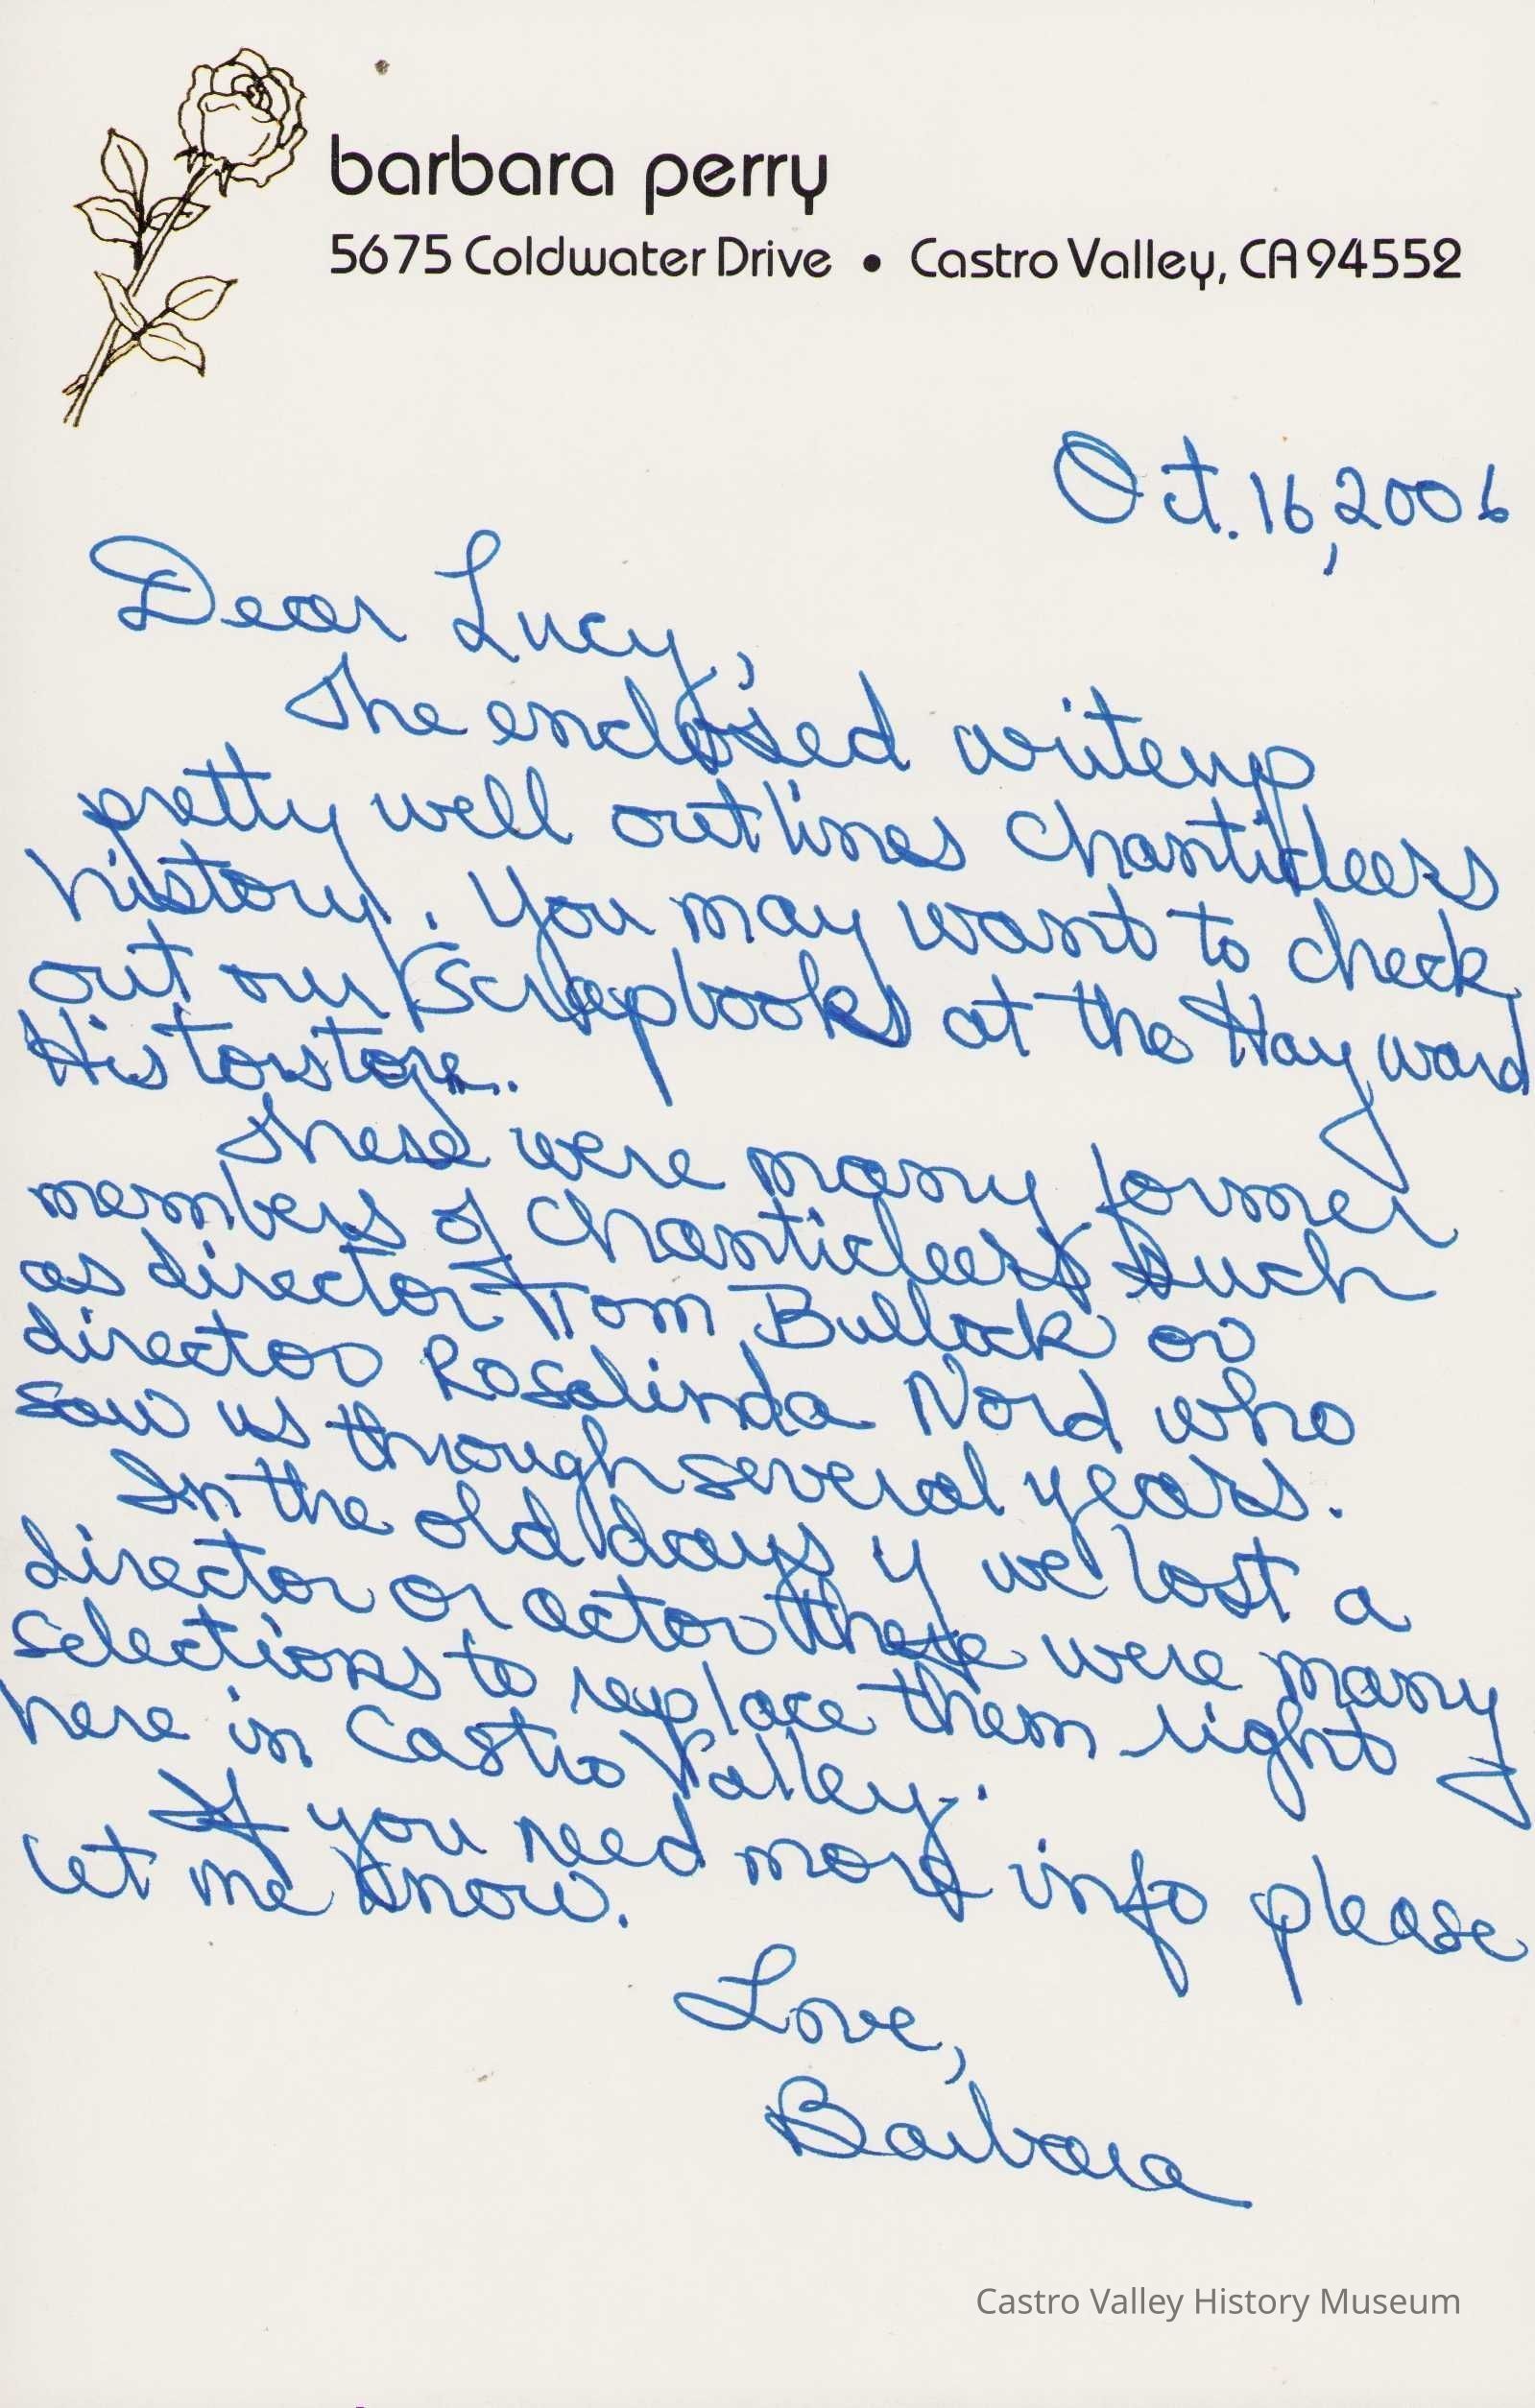 barbara perry
5675 Coldwater Drive • Castro Valley, CA 94552
Oct. 16, 2006
Dear Lucy,
The enclosed writeup
pretty well outlines Chanticleers
history. You may want to check
out our Scrapbooks at the Hayward
Historstore.
There were many former
members of Chanticleers such
as director Tom Bullock or
director Rosalinda Nord who
saw us through several years.
In the old days if we lost a
director or actor there were many
selections to replace them right
here in Castro Valley.
If you need more info please
let me know.
Love,
Barbara
Castro Valley History Museum